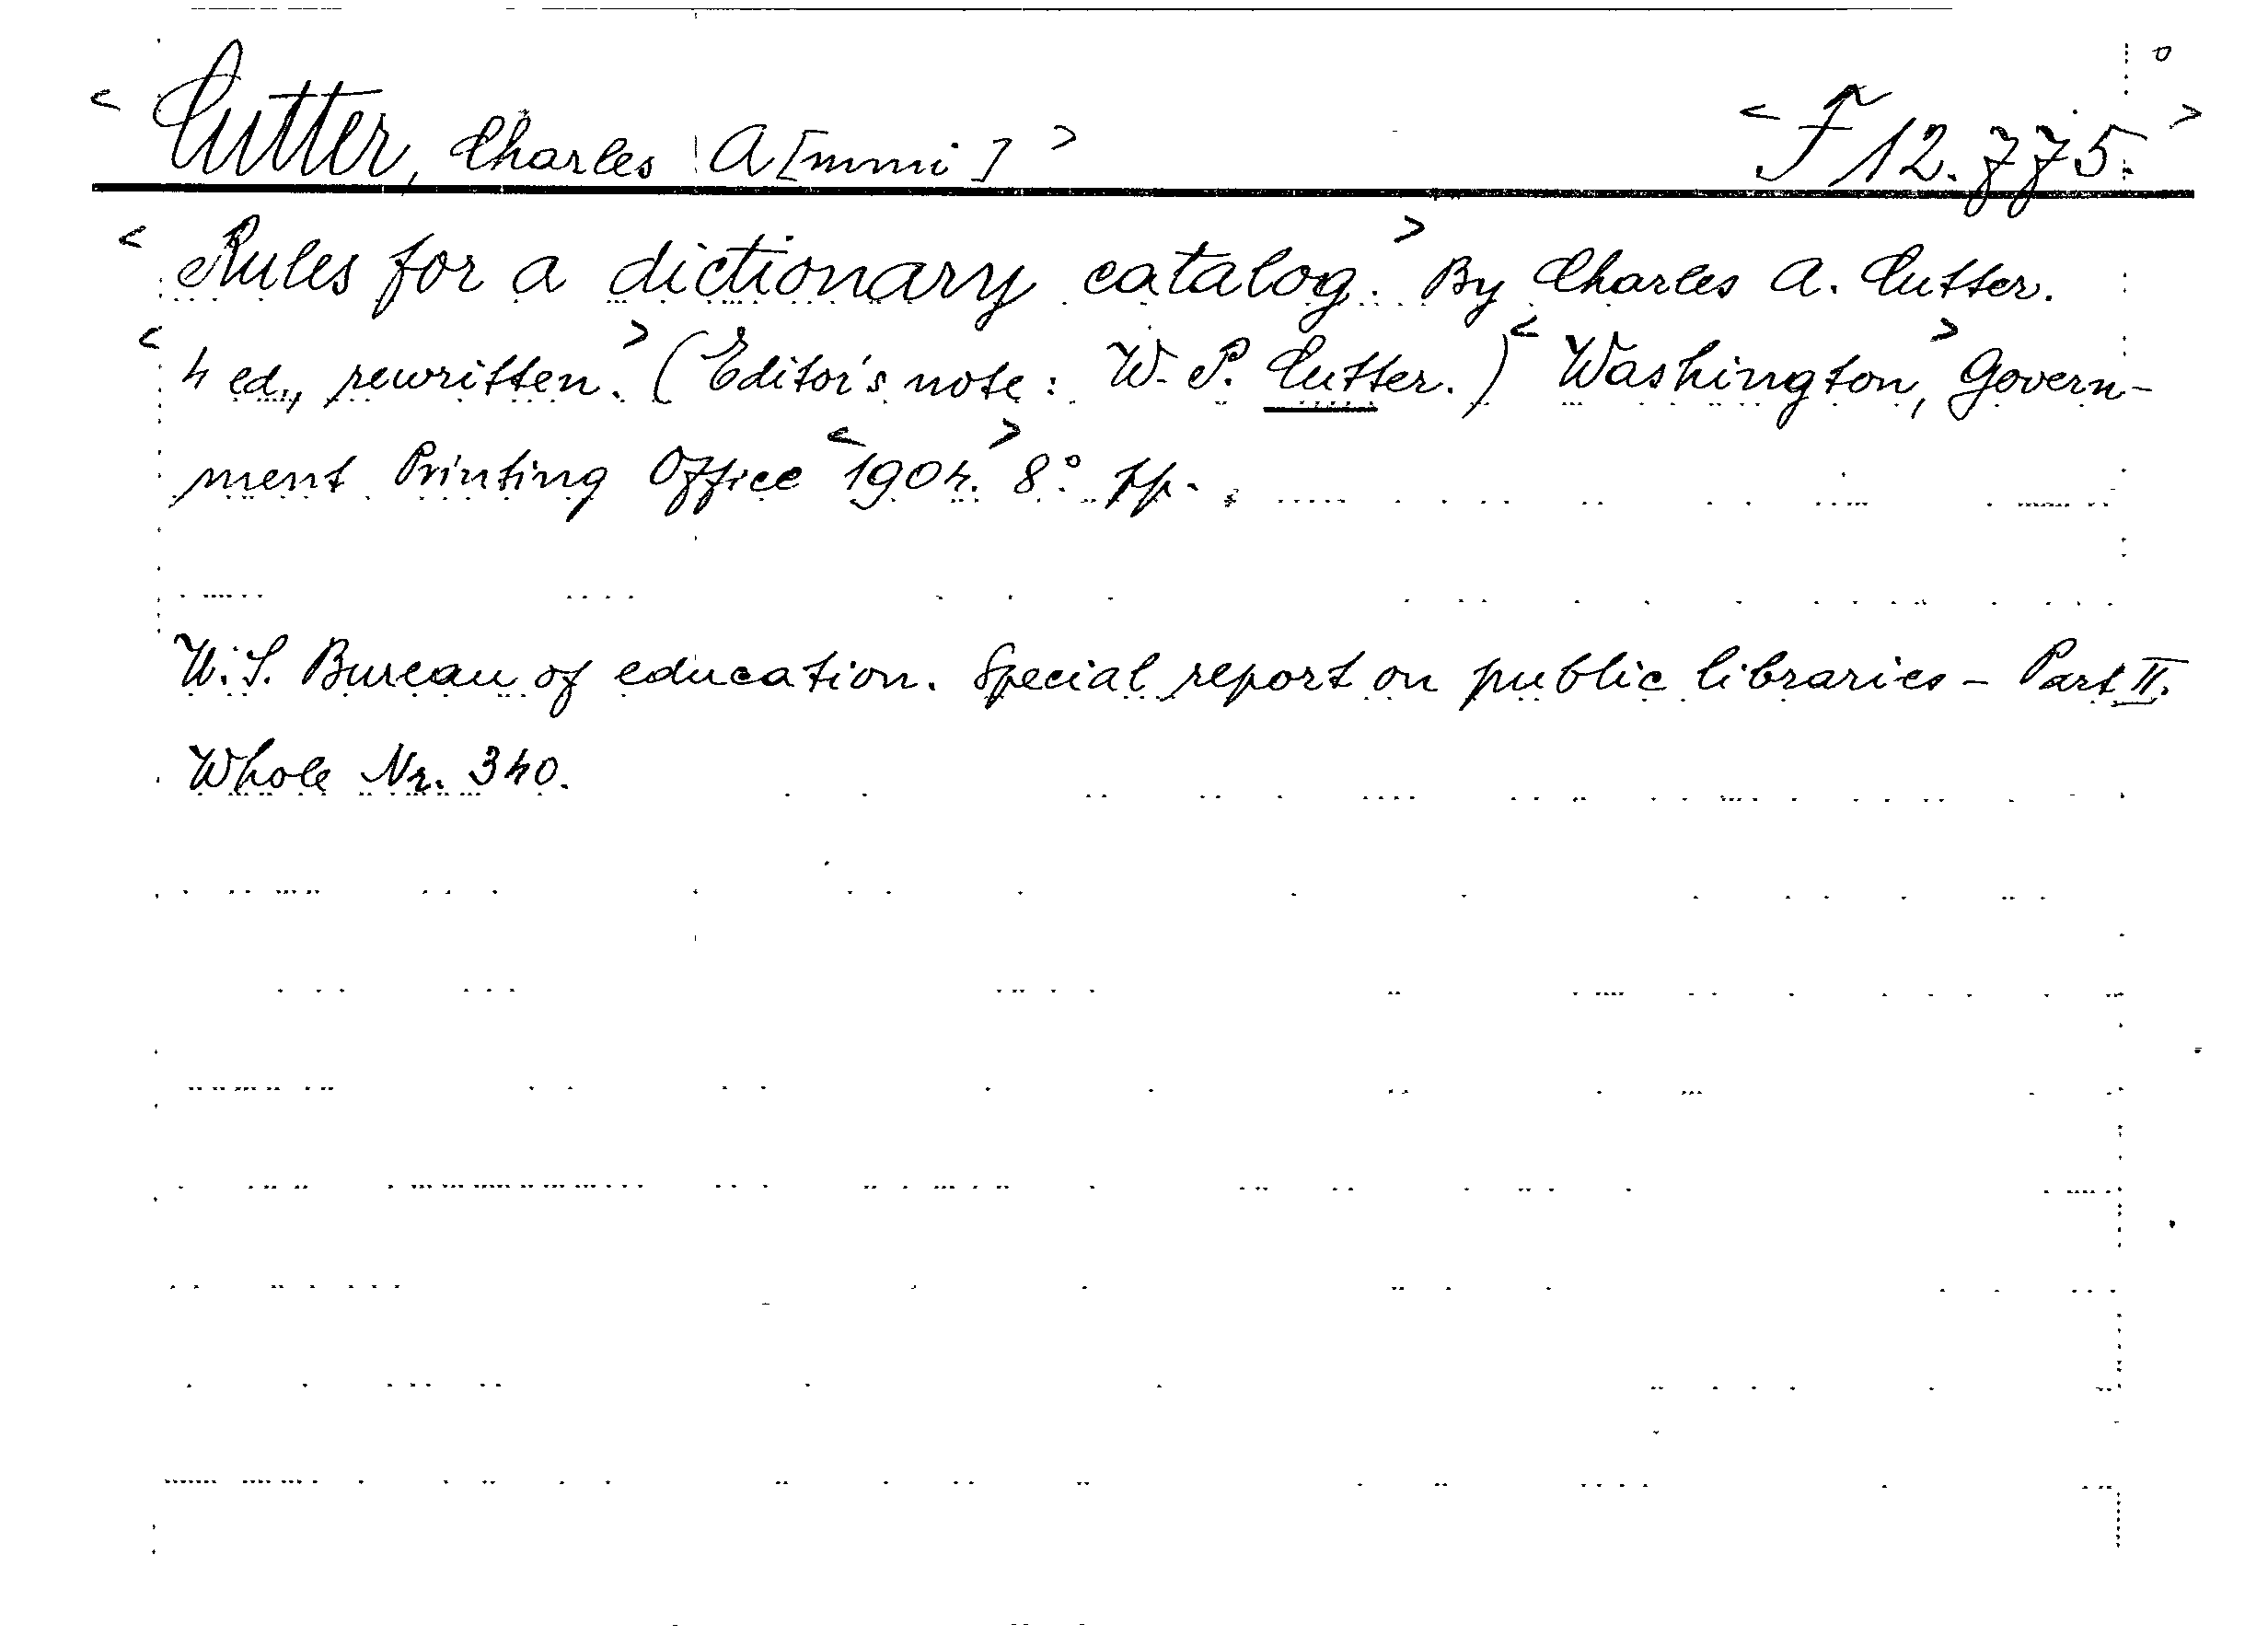 < Cutter, Charles A[mmi] > < F 12.775. >
< Rules for a dictionary catalog. > By Charles A. Cutter.
< 4 ed., rewritten. > (Editor's note: W. P. Cutter.) < Washington, > Govern-
ment Printing Office < 1904. > 8° pp.
U.S. Bureau of education. Special report on public libraries - Part II.
Whole Nr. 340.